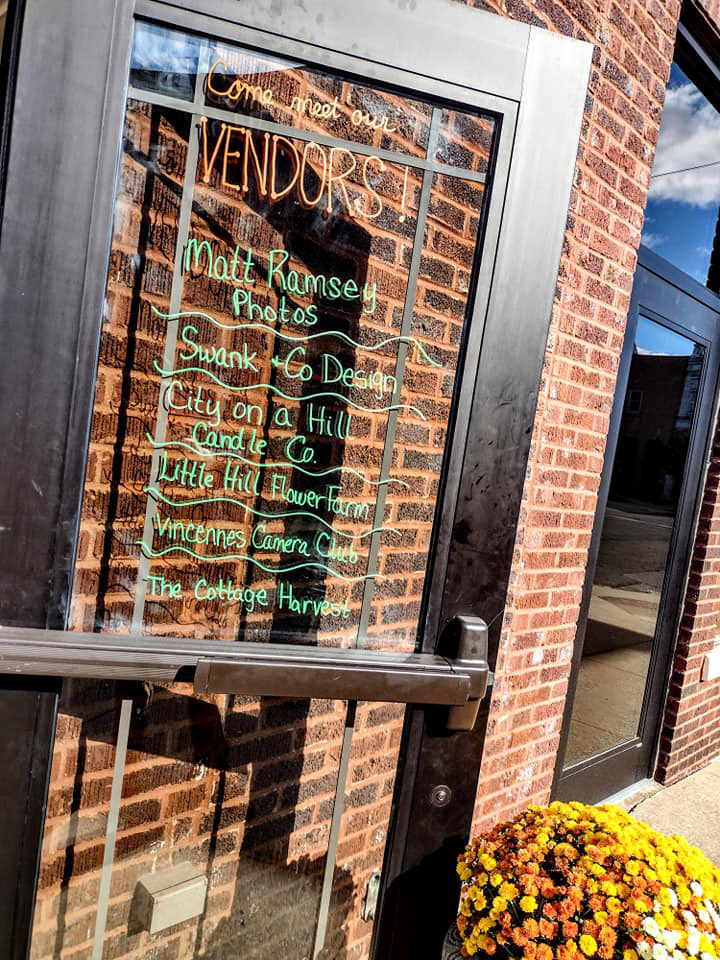 Come meet our
VENDORS!
Matt Ramsey
Photos
Swank + Co Design
City on a Hill
Candle Co.
Little Hill Flower Farm
Vincennes Camera Club
The Cottage Harvest